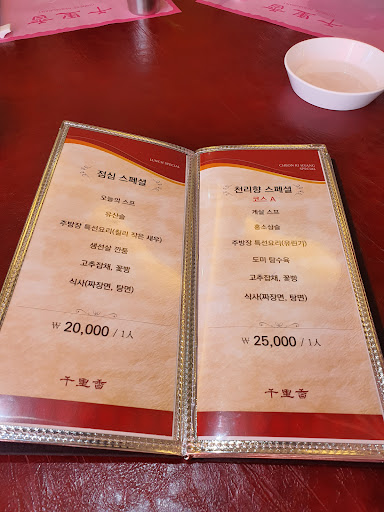 千里香
千里香
LUNCH SPECIAL
점심 스페셜
오늘의 스프
유산슬
주방장 특선요리(칠리 작은 새우)
생선살 깐풍
고추잡채, 꽃빵
식사(짜장면, 탕면)
₩ 20,000 / 1人
千里香
CHEON RI HYANG
SPECIAL
천리향 스페셜
코스 A
게살 스프
홍소삼슬
주방장 특선요리(유린기)
도미 탕수육
고추잡채, 꽃빵
식사(짜장면, 탕면)
₩ 25,000 / 1人
千里香